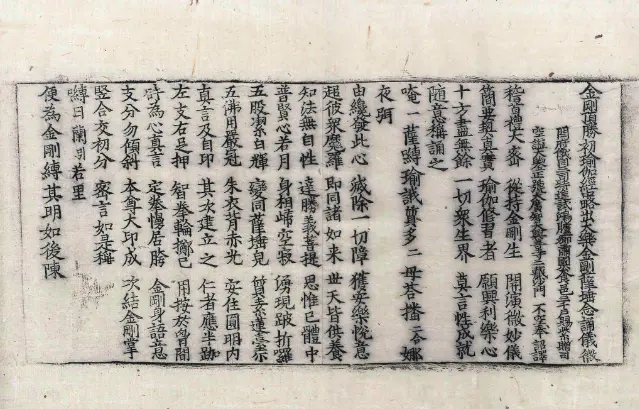 金剛頂勝初瑜伽經中略出大樂金剛薩埵念誦儀
開府儀同三司特進試鴻臚卿肅國公食邑三千戶賜紫贈司
空謚大鑒正號大廣智大興善寺三藏沙門不空奉 詔譯
稽首大 從持金剛生 開演微妙儀
簡要最真實 瑜伽修習者 願興利樂心
十方盡無餘 一切眾生界 真言性成就
隨意稱誦之
唵一薩嚩瑜誐質多二母荅播 娜
夜弭
由纔發此心 滅除一切障 獲安樂悅意
超彼眾魔羅 即同諸如來 世天皆供養
知法無自性 達勝義菩提 思惟己體中
普賢心若月 身相 空寂 湧現跋折囉
五股潔白輝 變同薩埵 色素蓮臺
五佛用嚴冠 朱衣背赤光 安住圓明內
真言及自印 其次建立之 仁者應半跏
左支右是押 智拳輪擲已 用按於 間
 為心真言 定拳慢居胯 金剛身語意
支分勿傾斜 本會大印成 次結金剛掌
竪合交初分 密言如是稱
嚩日 引 若里
便為金剛縛 其明如後陳